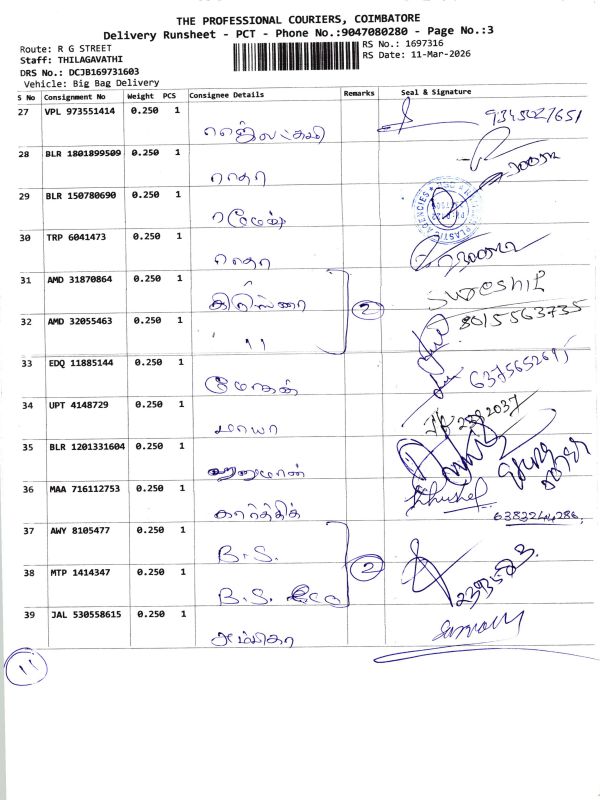 THE PROFESSIONAL COURIERS, COIMBATORE
Delivery Runsheet - PCT - Phone No.:9047080280 - Page No.:3
Route: R G STREET
RS No.: 1697316
Staff: THILAGAVATHI
RS Date: 11-Mar-2026
DRS No.: DCJB169731603
Vehicle: Big Bag Delivery
S No Consignment No Weight PCS Consignee Details Remarks Seal & Signature
27 VPL 973551414 0.250 1
28 BLR 1801899509 0.250 1 ராதா
29 BLR 150780690 0.250 1 ரமேஷ்
30 TRP 6041473 0.250 1 ராதா
31 AMD 31870864 0.250 1 2
32 AMD 32055463 0.250 1 11 8015563735
33 EDQ 11885144 0.250 1 மோகன்
34 UPT 4148729 0.250 1 மாயா 2382037
35 BLR 1201331604 0.250 1 ஹனுமான்
36 MAA 716112753 0.250 1 கார்த்திக் 6383244286
37 AWY 8105477 0.250 1 B.S. 2
38 MTP 1414347 0.250 1 B.S.
39 JAL 530558615 0.250 1 அம்பிகா
11